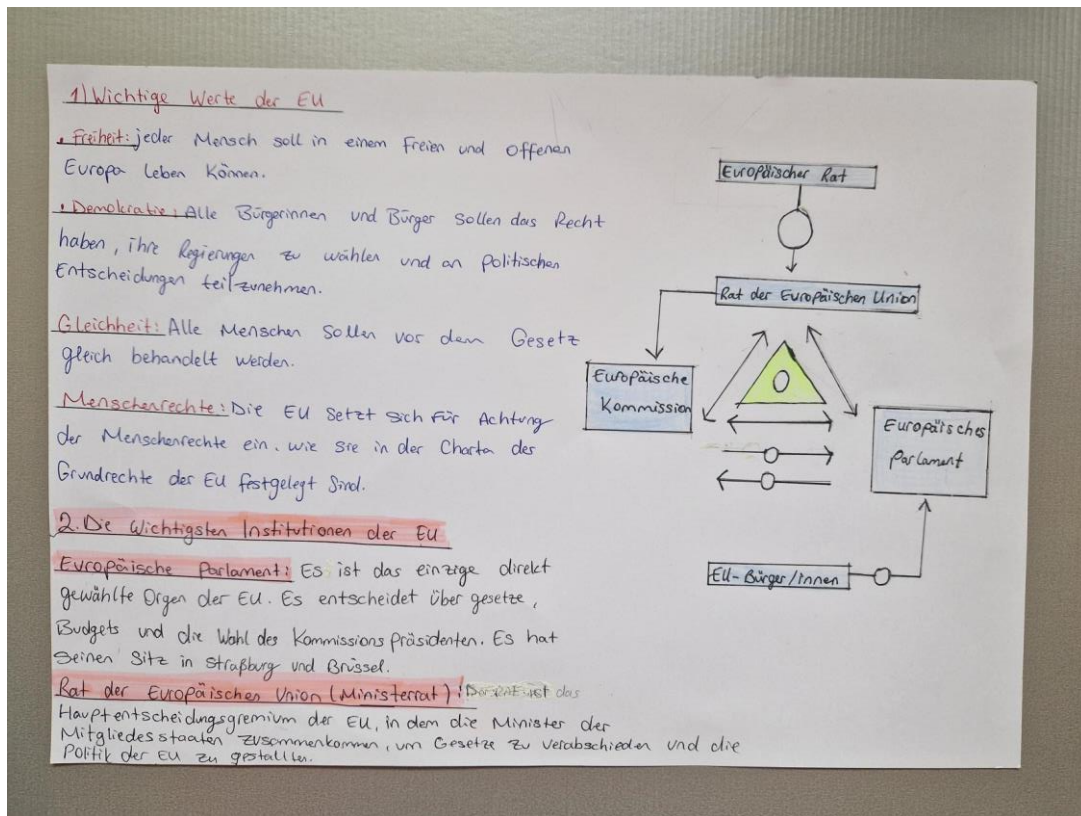 1) Wichtige Werte der EU
• Freiheit: jeder Mensch soll in einem Freien und offenen
Europa leben können.
• Demokratie: Alle Bürgerinnen und Bürger sollen das Recht
haben, ihre Regierungen zu wählen und an Politischen
Entscheidungen teilzunehmen.
Gleichheit: Alle Menschen sollen vor dem Gesetz
gleich behandelt werden.
Menschenrechte: Die EU setzt sich für Achtung
der Menschenrechte ein. wie sie in der Charta des
Grundrechte der EU festgelegt Sind.
2. Die Wichtigsten Institutionen der EU
Europäische Parlament: Es ist das einzige direkt
gewählte Orgen der EU. Es entscheidet über gesetze,
Budgets und die Wahl des Kommissions präsidenten. Es hat
seinen Sitz in Straßburg und Brüssel.
Rat der Europäischen Union (Ministerrat): ist das
Hauptentscheidungsgremium der EU, in dem die Minister der
Mitgliedesstaaten zusammenkommen, um Gesetze zu verabschieden und die
Politik der EU zu gestallten.
Europäischer Rat
Rat der Europäischen Union
Europäische
Kommission
Europäisches
Parlament
EU-Bürger/innen